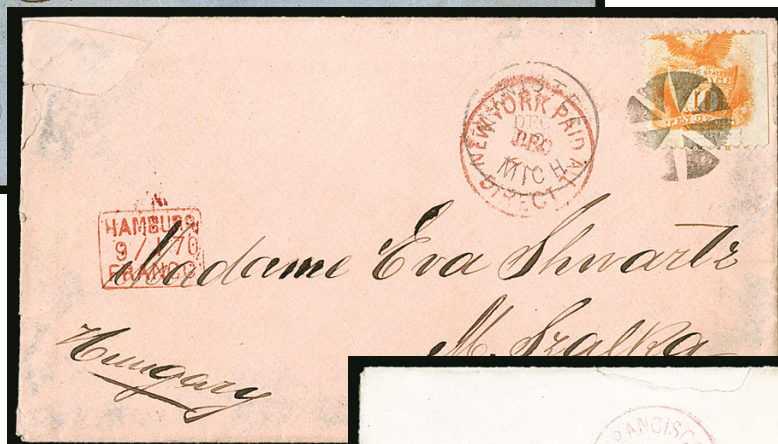 NEW YORK PAID ALL
DIRECT
DEC
MICH
10
HAMBURG
9 / 1 70
FRANCO
Madame Eva Shwartz
M. Szalka
Hungary
FRANCISC